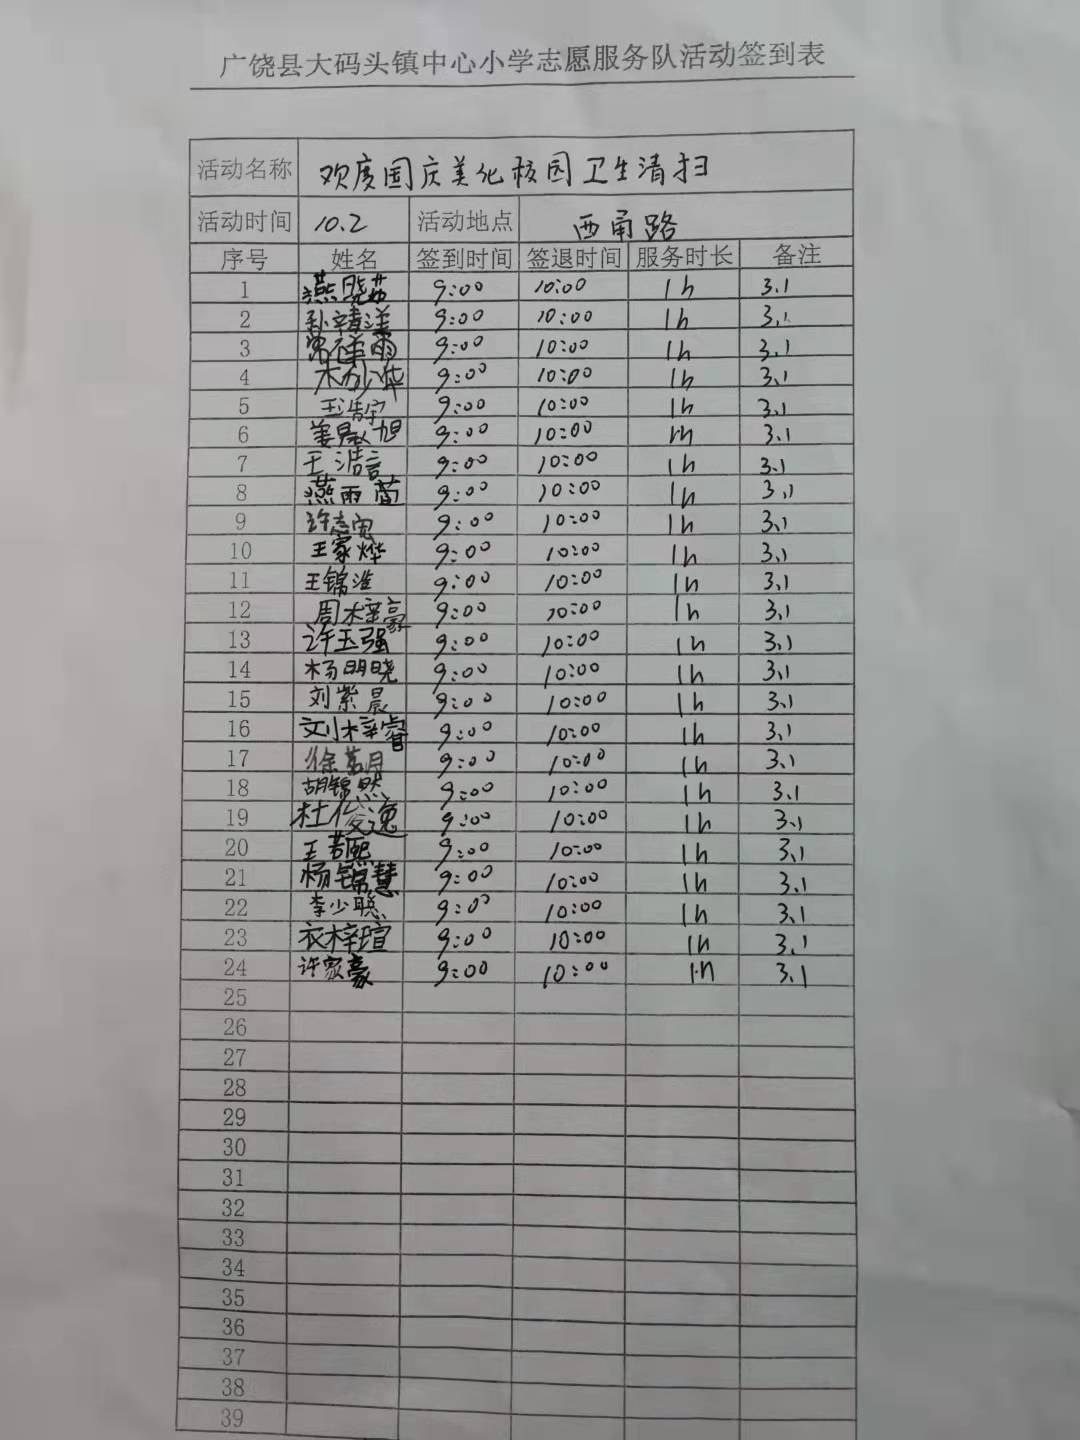 广饶县大码头镇中心小学志愿服务队活动签到表
活动名称 欢度国庆美化校园卫生清扫
活动时间 10.2 活动地点 西甬路
序号 姓名 签到时间 签退时间 服务时长 备注
1 燕晓茹 9:00 10:00 1h 3.1
2 孙靖洋 9:00 10:00 1h 3.1
3 9:00 10:00 1h 3.1
4 9:00 10:00 1h 3.1
5 王浩宇 9:00 10:00 1h 3.1
6 姜 旭 9:00 10:00 1h 3.1
7 王浩言 9:00 10:00 1h 3.1
8 燕雨萱 9:00 10:00 1h 3.1
9 许志 9:00 10:00 1h 3.1
10 王家烨 9:00 10:00 1h 3.1
11 王锦淮 9:00 10:00 1h 3.1
12 周梓豪 9:00 10:00 1h 3.1
13 许玉强 9:00 10:00 1h 3.1
14 杨明晓 9:00 10:00 1h 3.1
15 刘紫晨 9:00 10:00 1h 3.1
16 刘梓睿 9:00 10:00 1h 3.1
17 徐 月 9:00 10:00 1h 3.1
18 胡锦然 9:00 10:00 1h 3.1
19 杜俊逸 9:00 10:00 1h 3.1
20 王若熙 9:00 10:00 1h 3.1
21 杨锦慧 9:00 10:00 1h 3.1
22 李少聪 9:00 10:00 1h 3.1
23 衣梓瑄 9:00 10:00 1h 3.1
24 许家豪 9:00 10:00 1h 3.1
25
26
27
28
29
30
31
32
33
34
35
36
37
38
39